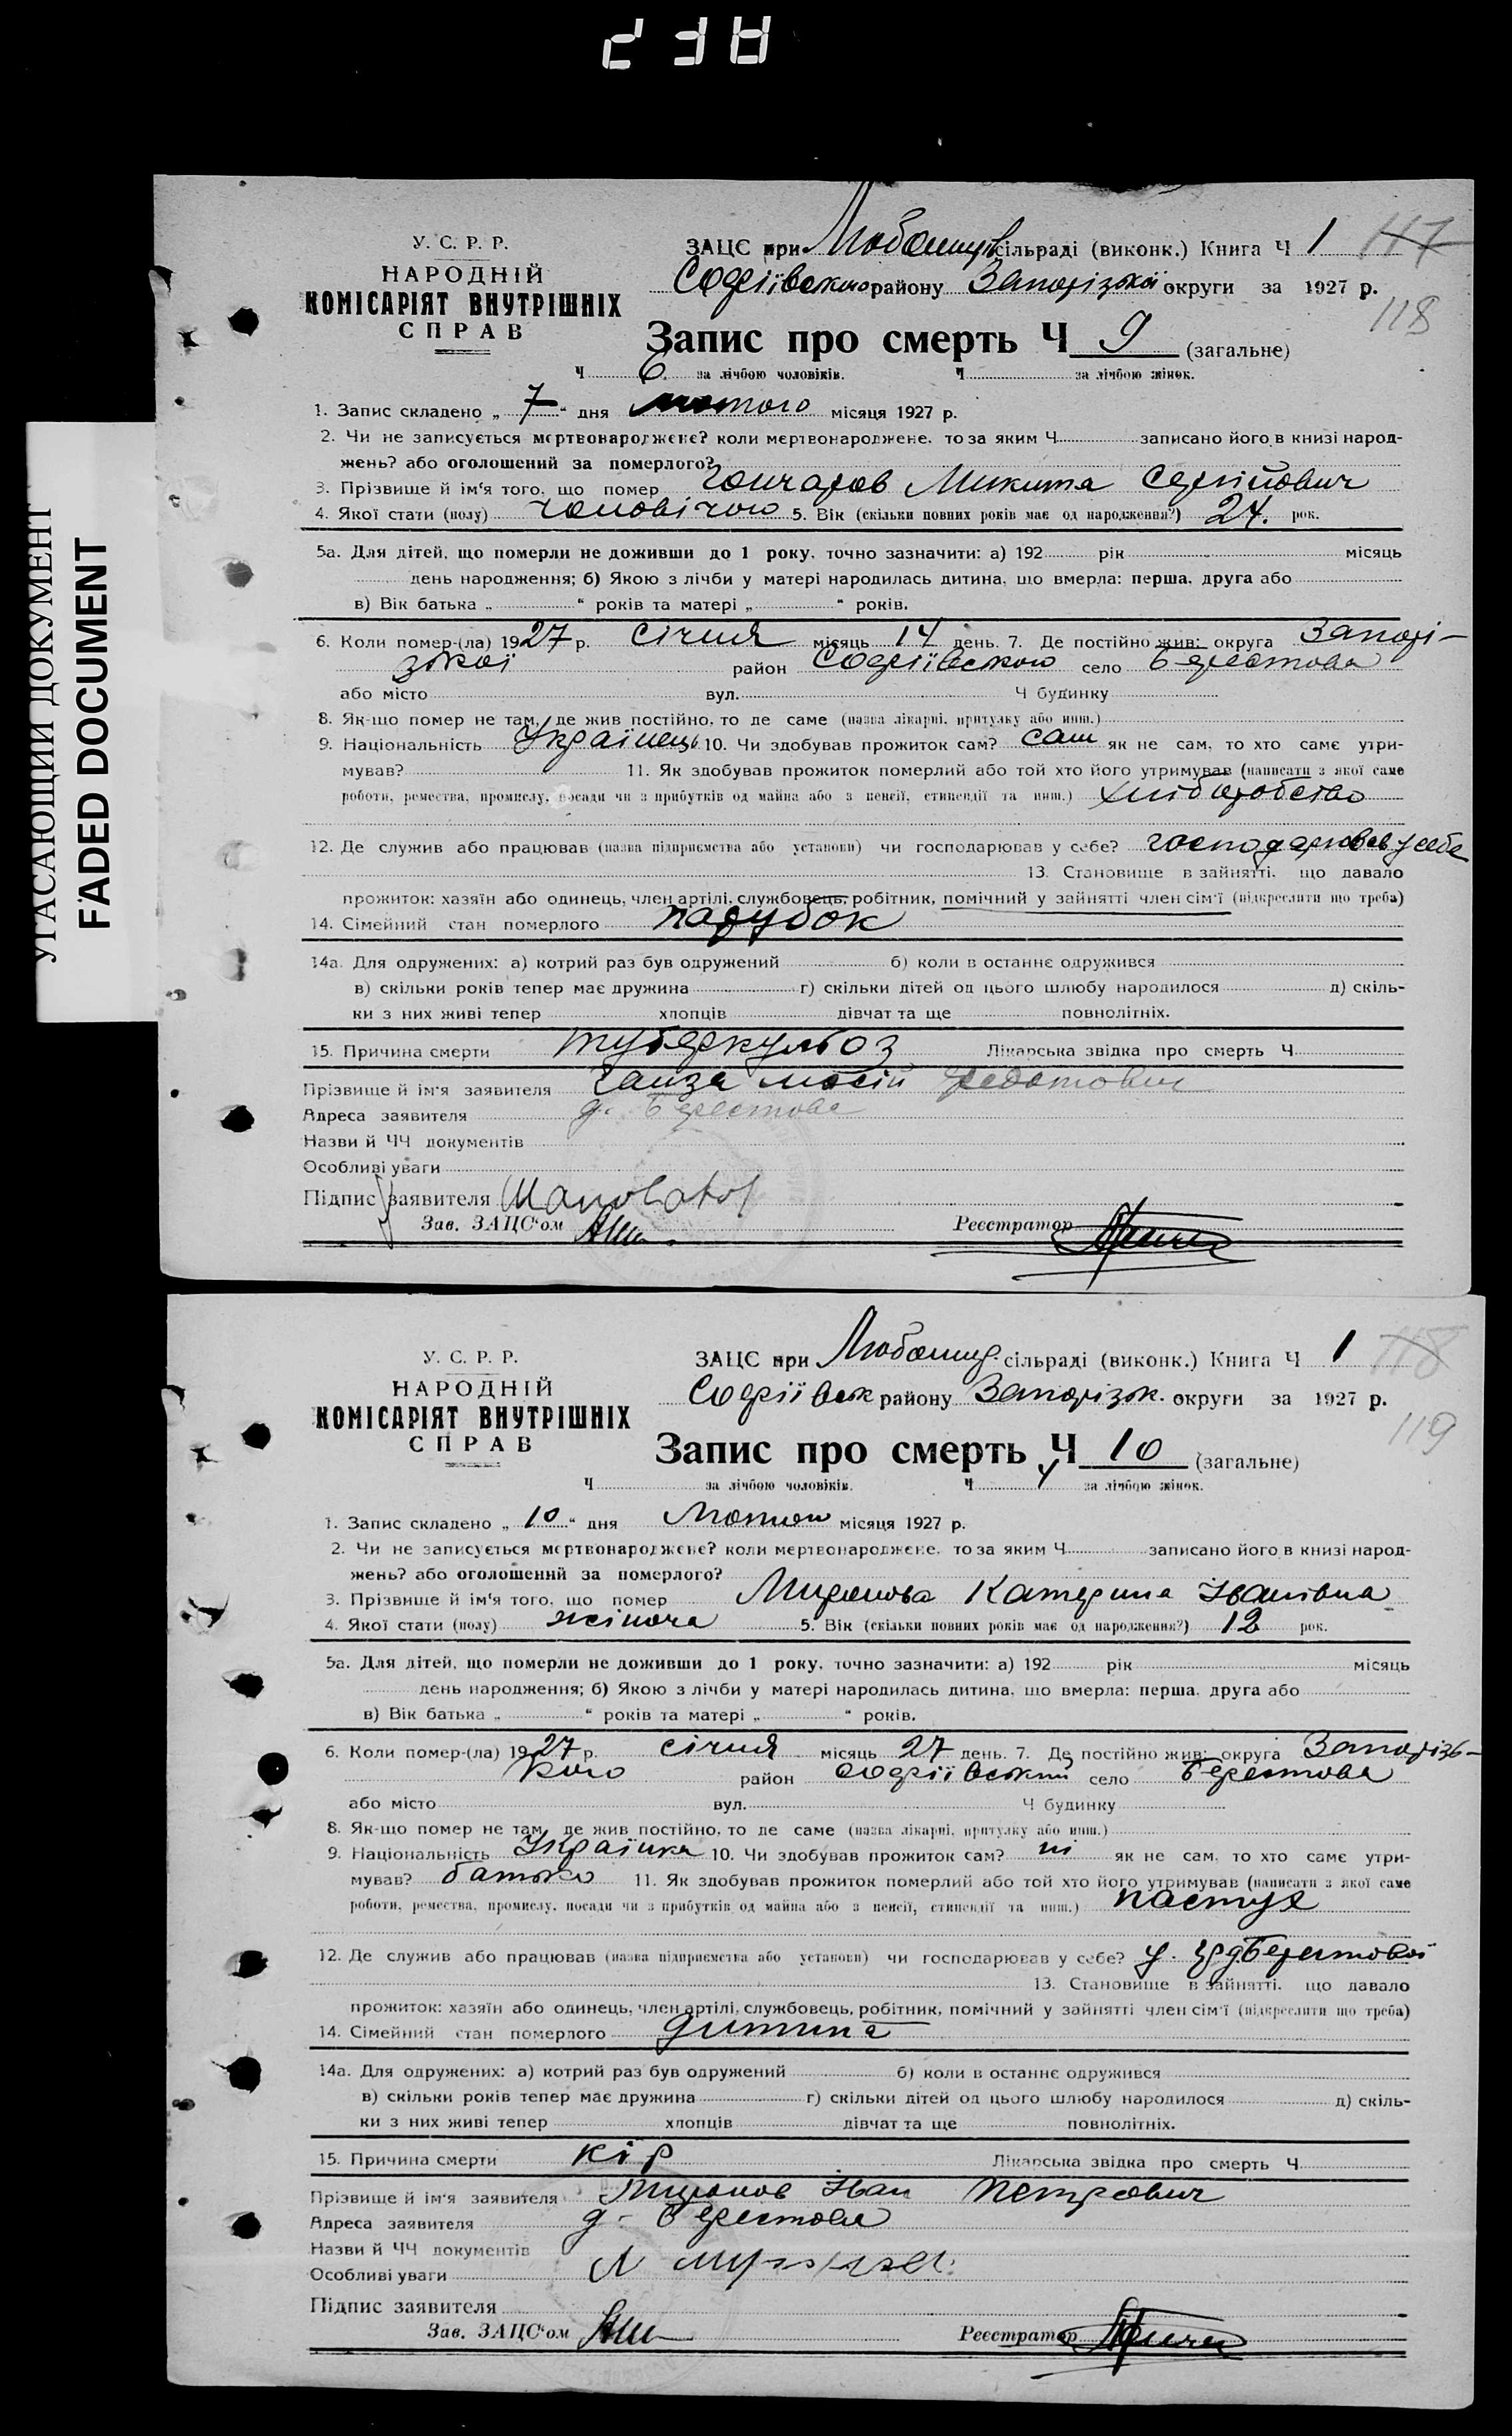 УГАСАЮЩИЙ ДОКУМЕНТ
FADED DOCUMENT
У. С. Р. Р.
НАРОДНІЙ
КОМІСАРІЯТ ВНУТРІШНІХ
СПРАВ
ЗАЦС при сільраді (виконк.) Книга Ч 1 117
Софіївського району Запорізької округи за 1927 р.
118
Запис про смерть Ч 9 (загальне)
Ч 6 за лічбою чоловіків. Ч за лічбою жінок.
1. Запис складено „ 7 “ дня лютого місяця 1927 р.
2. Чи не записується мертвонароджене? коли мертвонароджене, то за яким Ч записано його в книзі народ-
жень? або оголошений за померлого?
3. Прізвище й ім'я того, що помер Гончаров Микита Сергійович
4. Якої стати (полу) чоловічого 5. Вік (скільки повних років має од народження?) 24. рок.
5а. Для дітей, що померли не доживши до 1 року, точно зазначити: а) 192 рік місяць
день народження; б) Якою з лічби у матері народилась дитина, що вмерла: перша, друга або
в) Вік батька „ “ років та матері „ “ років.
6. Коли помер-(ла) 1927 р. січня місяць 14 день. 7. Де постійно жив: округа Запорі-
зької район Софіївського село Берестова
або місто вул. Ч будинку
8. Як-що помер не там, де жив постійно, то де саме (назва лікарні, притулку або инш.)
9. Національність Українець 10. Чи здобував прожиток сам? сам як не сам, то хто саме утри-
мував? 11. Як здобував прожиток померлий або той хто його утримував (написати з якої саме
роботи, ремества, промислу, посади чи з прибутків од майна або з пенсії, стипендії та инш.) хліборобство
12. Де служив або працював (назва підприємства або установи) чи господарював у себе? господарював у себе
13. Становище в зайнятті, що давало
прожиток: хазяїн або одинець, член артілі, службовець, робітник, помічний у зайнятті член сім'ї (підкреслити що треба)
14. Сімейний стан померлого парубок
14а. Для одружених: а) котрий раз був одружений б) коли в останнє одружився
в) скільки років тепер має дружина г) скільки дітей од цього шлюбу народилося д) скіль-
ки з них живі тепер хлопців дівчат та ще повнолітніх.
15. Причина смерти туберкульоз Лікарська звідка про смерть Ч
Прізвище й ім'я заявителя Федотович
Адреса заявителя д. Берестова
Назви й ЧЧ документів
Особливі уваги
Підпис заявителя
Зав. ЗАЦС'ом Реєстратор
У. С. Р. Р.
НАРОДНІЙ
КОМІСАРІЯТ ВНУТРІШНІХ
СПРАВ
ЗАЦС при сільраді (виконк.) Книга Ч 1 118
Софіївськ району Запорізьк. округи за 1927 р.
119
Запис про смерть Ч 10 (загальне)
Ч за лічбою чоловіків. Ч 4 за лічбою жінок.
1. Запис складено „ 10 “ дня місяця 1927 р.
2. Чи не записується мертвонароджене? коли мертвонароджене, то за яким Ч записано його в книзі народ-
жень? або оголошений за померлого?
3. Прізвище й ім'я того, що помер Миронова Катерина Іванівна
4. Якої стати (полу) жіноча 5. Вік (скільки повних років має од народження?) 12 рок.
5а. Для дітей, що померли не доживши до 1 року, точно зазначити: а) 192 рік місяць
день народження; б) Якою з лічби у матері народилась дитина, що вмерла: перша, друга або
в) Вік батька „ “ років та матері „ “ років.
6. Коли помер-(ла) 1927 р. січня місяць 27 день. 7. Де постійно жив: округа Запорізь-
кого район Софіївський село Берестова
або місто вул. Ч будинку
8. Як-що помер не там, де жив постійно, то де саме (назва лікарні, притулку або инш.)
9. Національність Українка 10. Чи здобував прожиток сам? ні як не сам, то хто саме утри-
мував? батько 11. Як здобував прожиток померлий або той хто його утримував (написати з якої саме
роботи, ремества, промислу, посади чи з прибутків од майна або з пенсії, стипендії та инш.) пастух
12. Де служив або працював (назва підприємства або установи) чи господарював у себе? у Берестової
13. Становище в зайнятті, що давало
прожиток: хазяїн або одинець, член артілі, службовець, робітник, помічний у зайнятті член сім'ї (підкреслити що треба)
14. Сімейний стан померлого дитина
14а. Для одружених: а) котрий раз був одружений б) коли в останнє одружився
в) скільки років тепер має дружина г) скільки дітей од цього шлюбу народилося д) скіль-
ки з них живі тепер хлопців дівчат та ще повнолітніх.
15. Причина смерти кір Лікарська звідка про смерть Ч
Прізвище й ім'я заявителя Миронов Іван Петрович
Адреса заявителя д. Берестова
Назви й ЧЧ документів
Особливі уваги
Підпис заявителя
Зав. ЗАЦС'ом Реєстратор